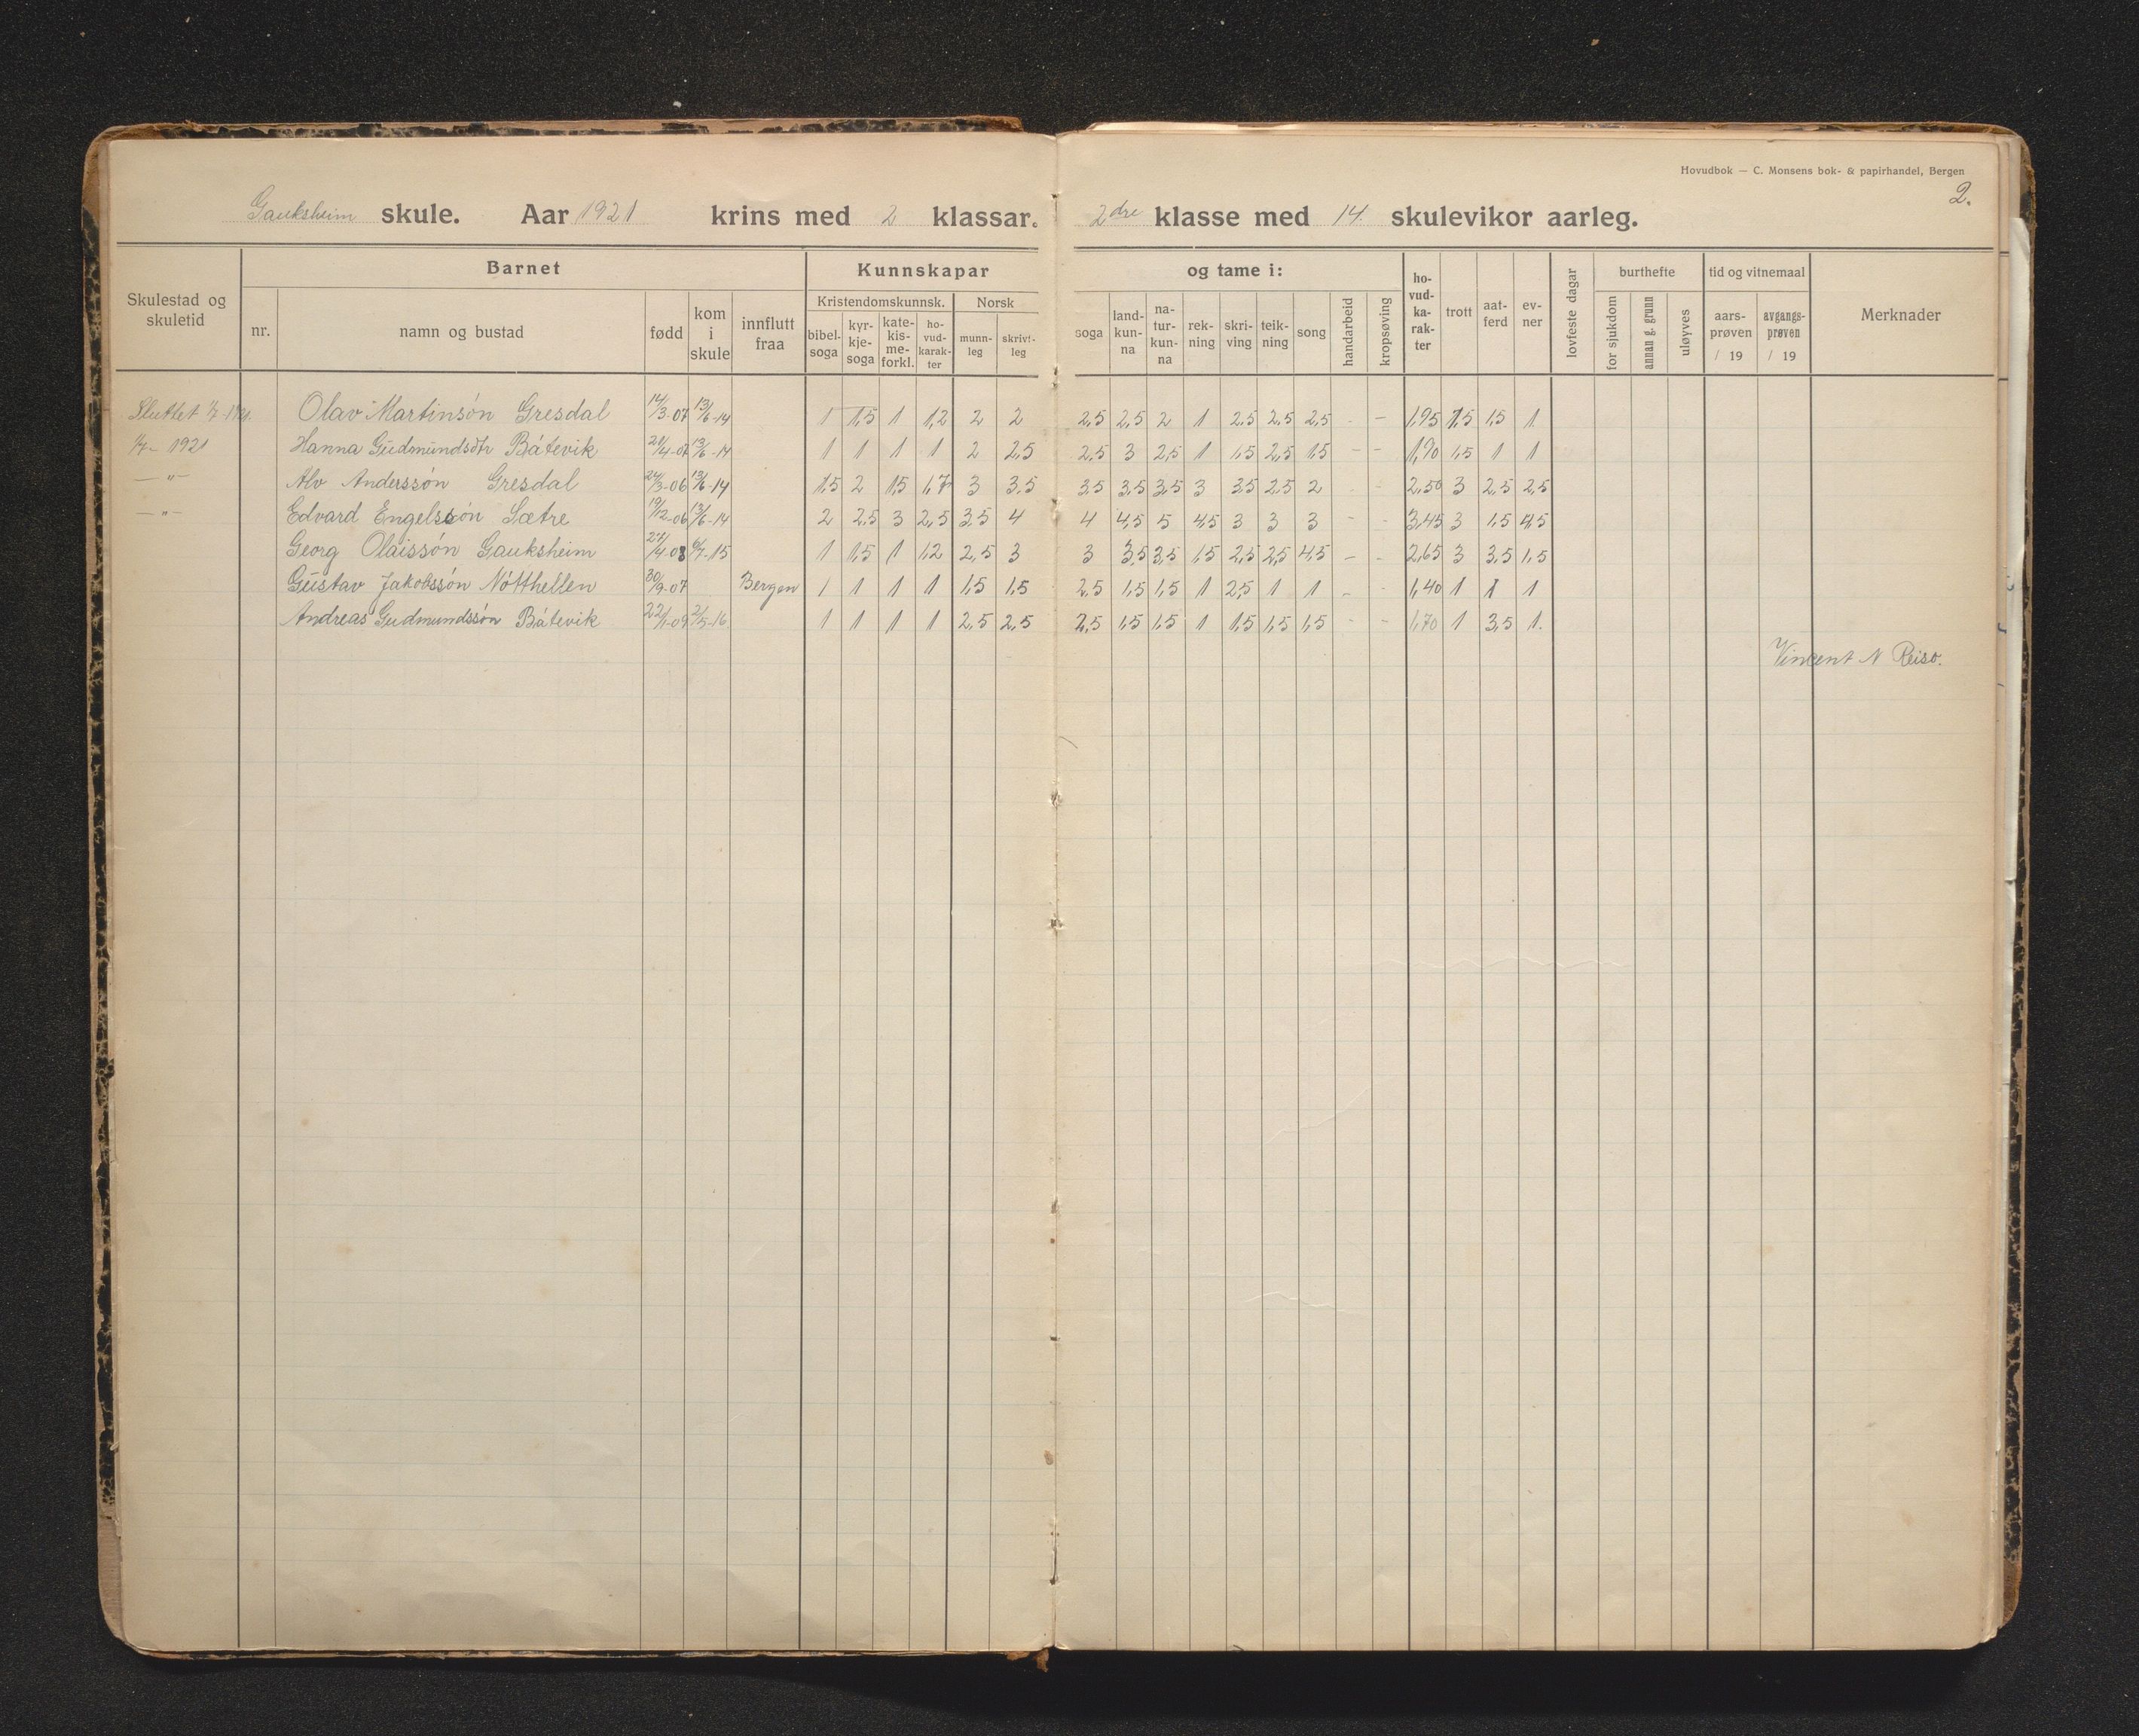 Hovudbok — C. Monsens bok- & papirhandel, Bergen
2.
Gauksheim skule. Aar 1921 krins med 2 klassar. 2dre klasse med 14 skulevikor aarleg.
Skulestad og skuletid Barnet Kunnskapar og tame i: ho-vud-ka-rak-ter trott aat-ferd ev-ner lovfeste dagar burthefte tid og vitnemaal Merknader
Kristendomskunnsk. Norsk
nr. namn og bustad fødd kom i skule innflutt fraa bibel-soga kyr-kje-soga kate-kis-me-forkl. ho-vud-karak-ter munn-leg skrivt-leg soga land-kun-na na-tur-kun-na rek-ning skri-ving teik-ning song handarbeid kropsøving for sjukdom annan g. grunn uløyves aars-prøven / 19 avgangs-prøven / 19
Sluttet Olav Martinsón Gresdal 14/3-07 13/6-14 1 1,5 1 1,2 2 2 2,5 2,5 2 1 2,5 2,5 2,5 - - 1,95 1,5 1,5 1
1921 Hanna Gudmundsdtr Båtevik 21/4-07 13/6-14 1 1 1 1 2 2,5 2,5 3 2,5 1 1,5 2,5 1,5 - - 1,90 1,5 1 1
—"— Alv Anderssón Gresdal 24/3-06 13/6-14 1,5 2 1,5 1,7 3 3,5 3,5 3,5 3,5 3 3,5 2,5 2 - - 2,50 3 2,5 2,5
—"— Edvard Engelssón Sætre 19/12-06 13/6-14 2 2,5 3 2,5 3,5 4 4 4,5 5 4,5 3 3 3 - - 3,45 3 1,5 4,5
Georg Olaissón Gauksheim 27/4-08 6/7-15 1 1,5 1 1,2 2,5 3 3 3,5 3,5 1,5 2,5 2,5 4,5 - - 2,65 3 3,5 1,5
Gustav Jakobssón Nótthellen 30/9-07 Bergen 1 1 1 1 1,5 1,5 2,5 1,5 1,5 1 2,5 1 1 - - 1,40 1 1 1
Andreas Gudmundssón Båtevik 22/1-09 2/5-16 1 1 1 1 2,5 2,5 2,5 1,5 1,5 1 1,5 1,5 1,5 - - 1,70 1 3,5 1.
Vincent N Reiso.